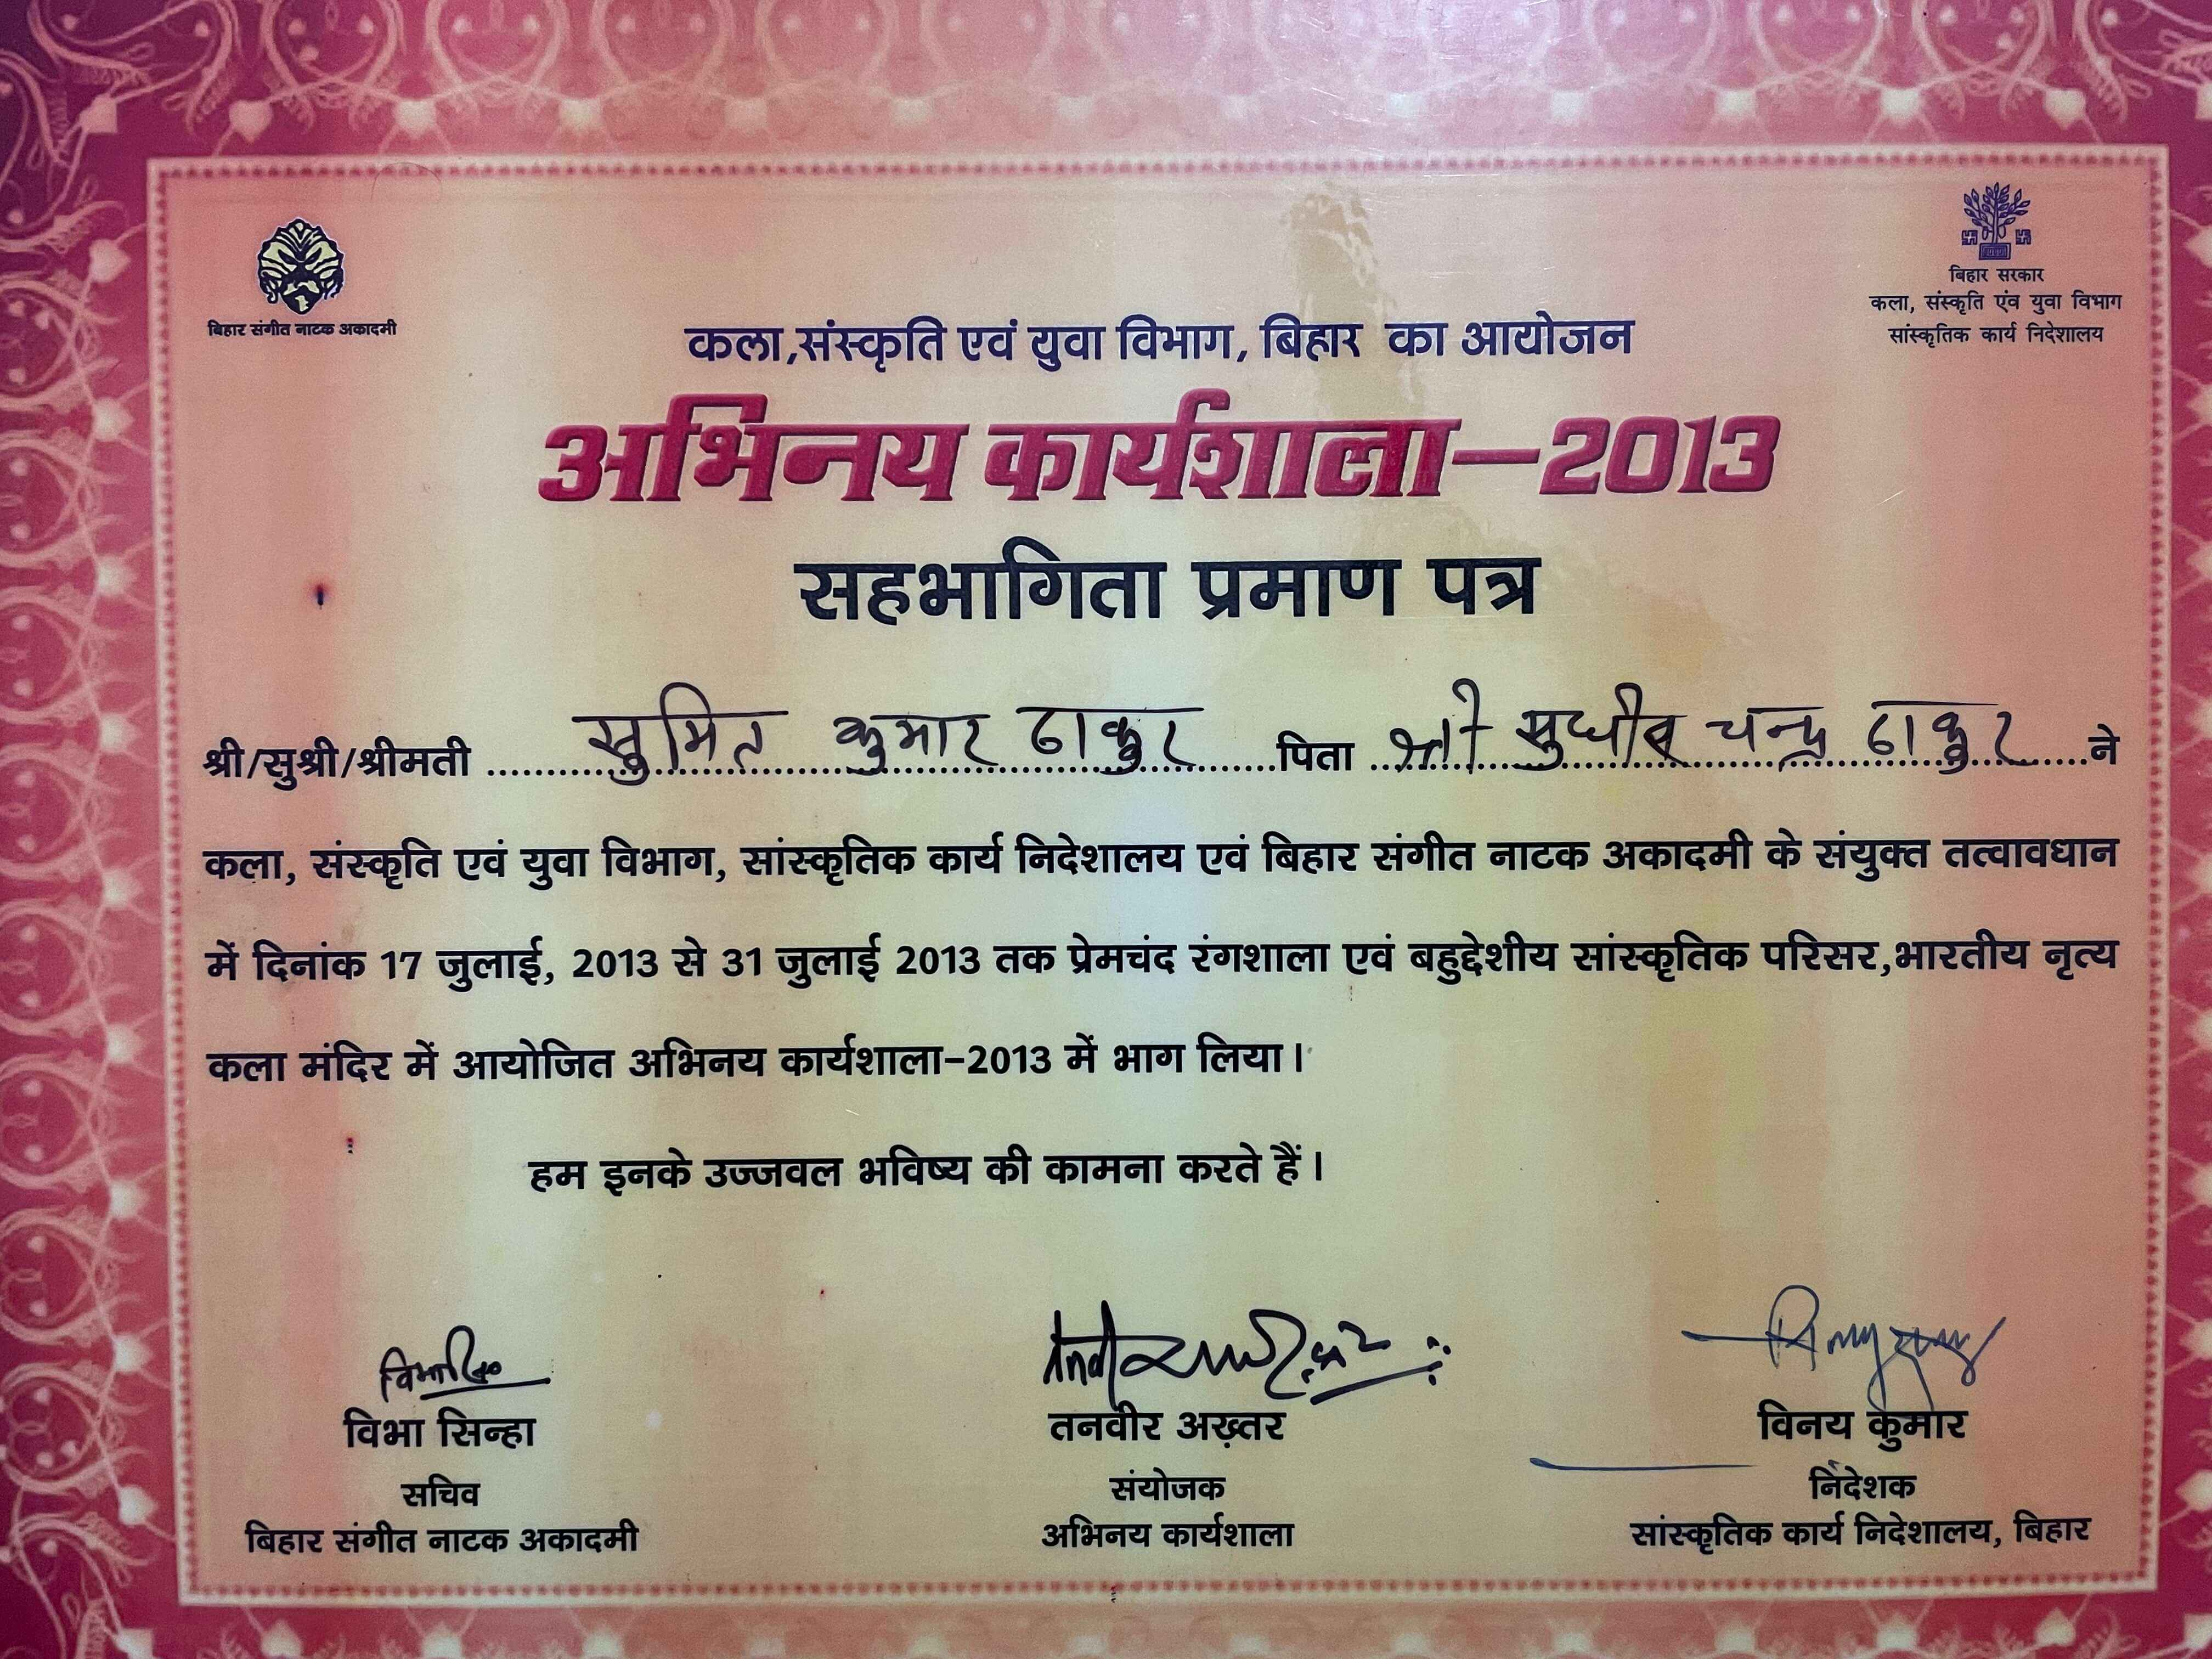 बिहार संगीत नाटक अकादमी
बिहार सरकार
कला, संस्कृति एंव युवा विभाग
सांस्कृतिक कार्य निदेशालय
कला,संस्कृति एवं युवा विभाग, बिहार का आयोजन
अभिनय कार्यशाला-2013
सहभागिता प्रमाण पत्र
श्री/सुश्री/श्रीमती सुमित कुमार ठाकुर पिता श्री सुधीर चन्द्र ठाकुर ने
कला, संस्कृति एवं युवा विभाग, सांस्कृतिक कार्य निदेशालय एवं बिहार संगीत नाटक अकादमी के संयुक्त तत्वावधान
में दिनांक 17 जुलाई, 2013 से 31 जुलाई 2013 तक प्रेमचंद रंगशाला एवं बहुद्देशीय सांस्कृतिक परिसर,भारतीय नृत्य
कला मंदिर में आयोजित अभिनय कार्यशाला-2013 में भाग लिया।
हम इनके उज्जवल भविष्य की कामना करते हैं।
विभा सिन्हा
सचिव
बिहार संगीत नाटक अकादमी
तनवीर अख़्तर
संयोजक
अभिनय कार्यशाला
विनय कुमार
निदेशक
सांस्कृतिक कार्य निदेशालय, बिहार